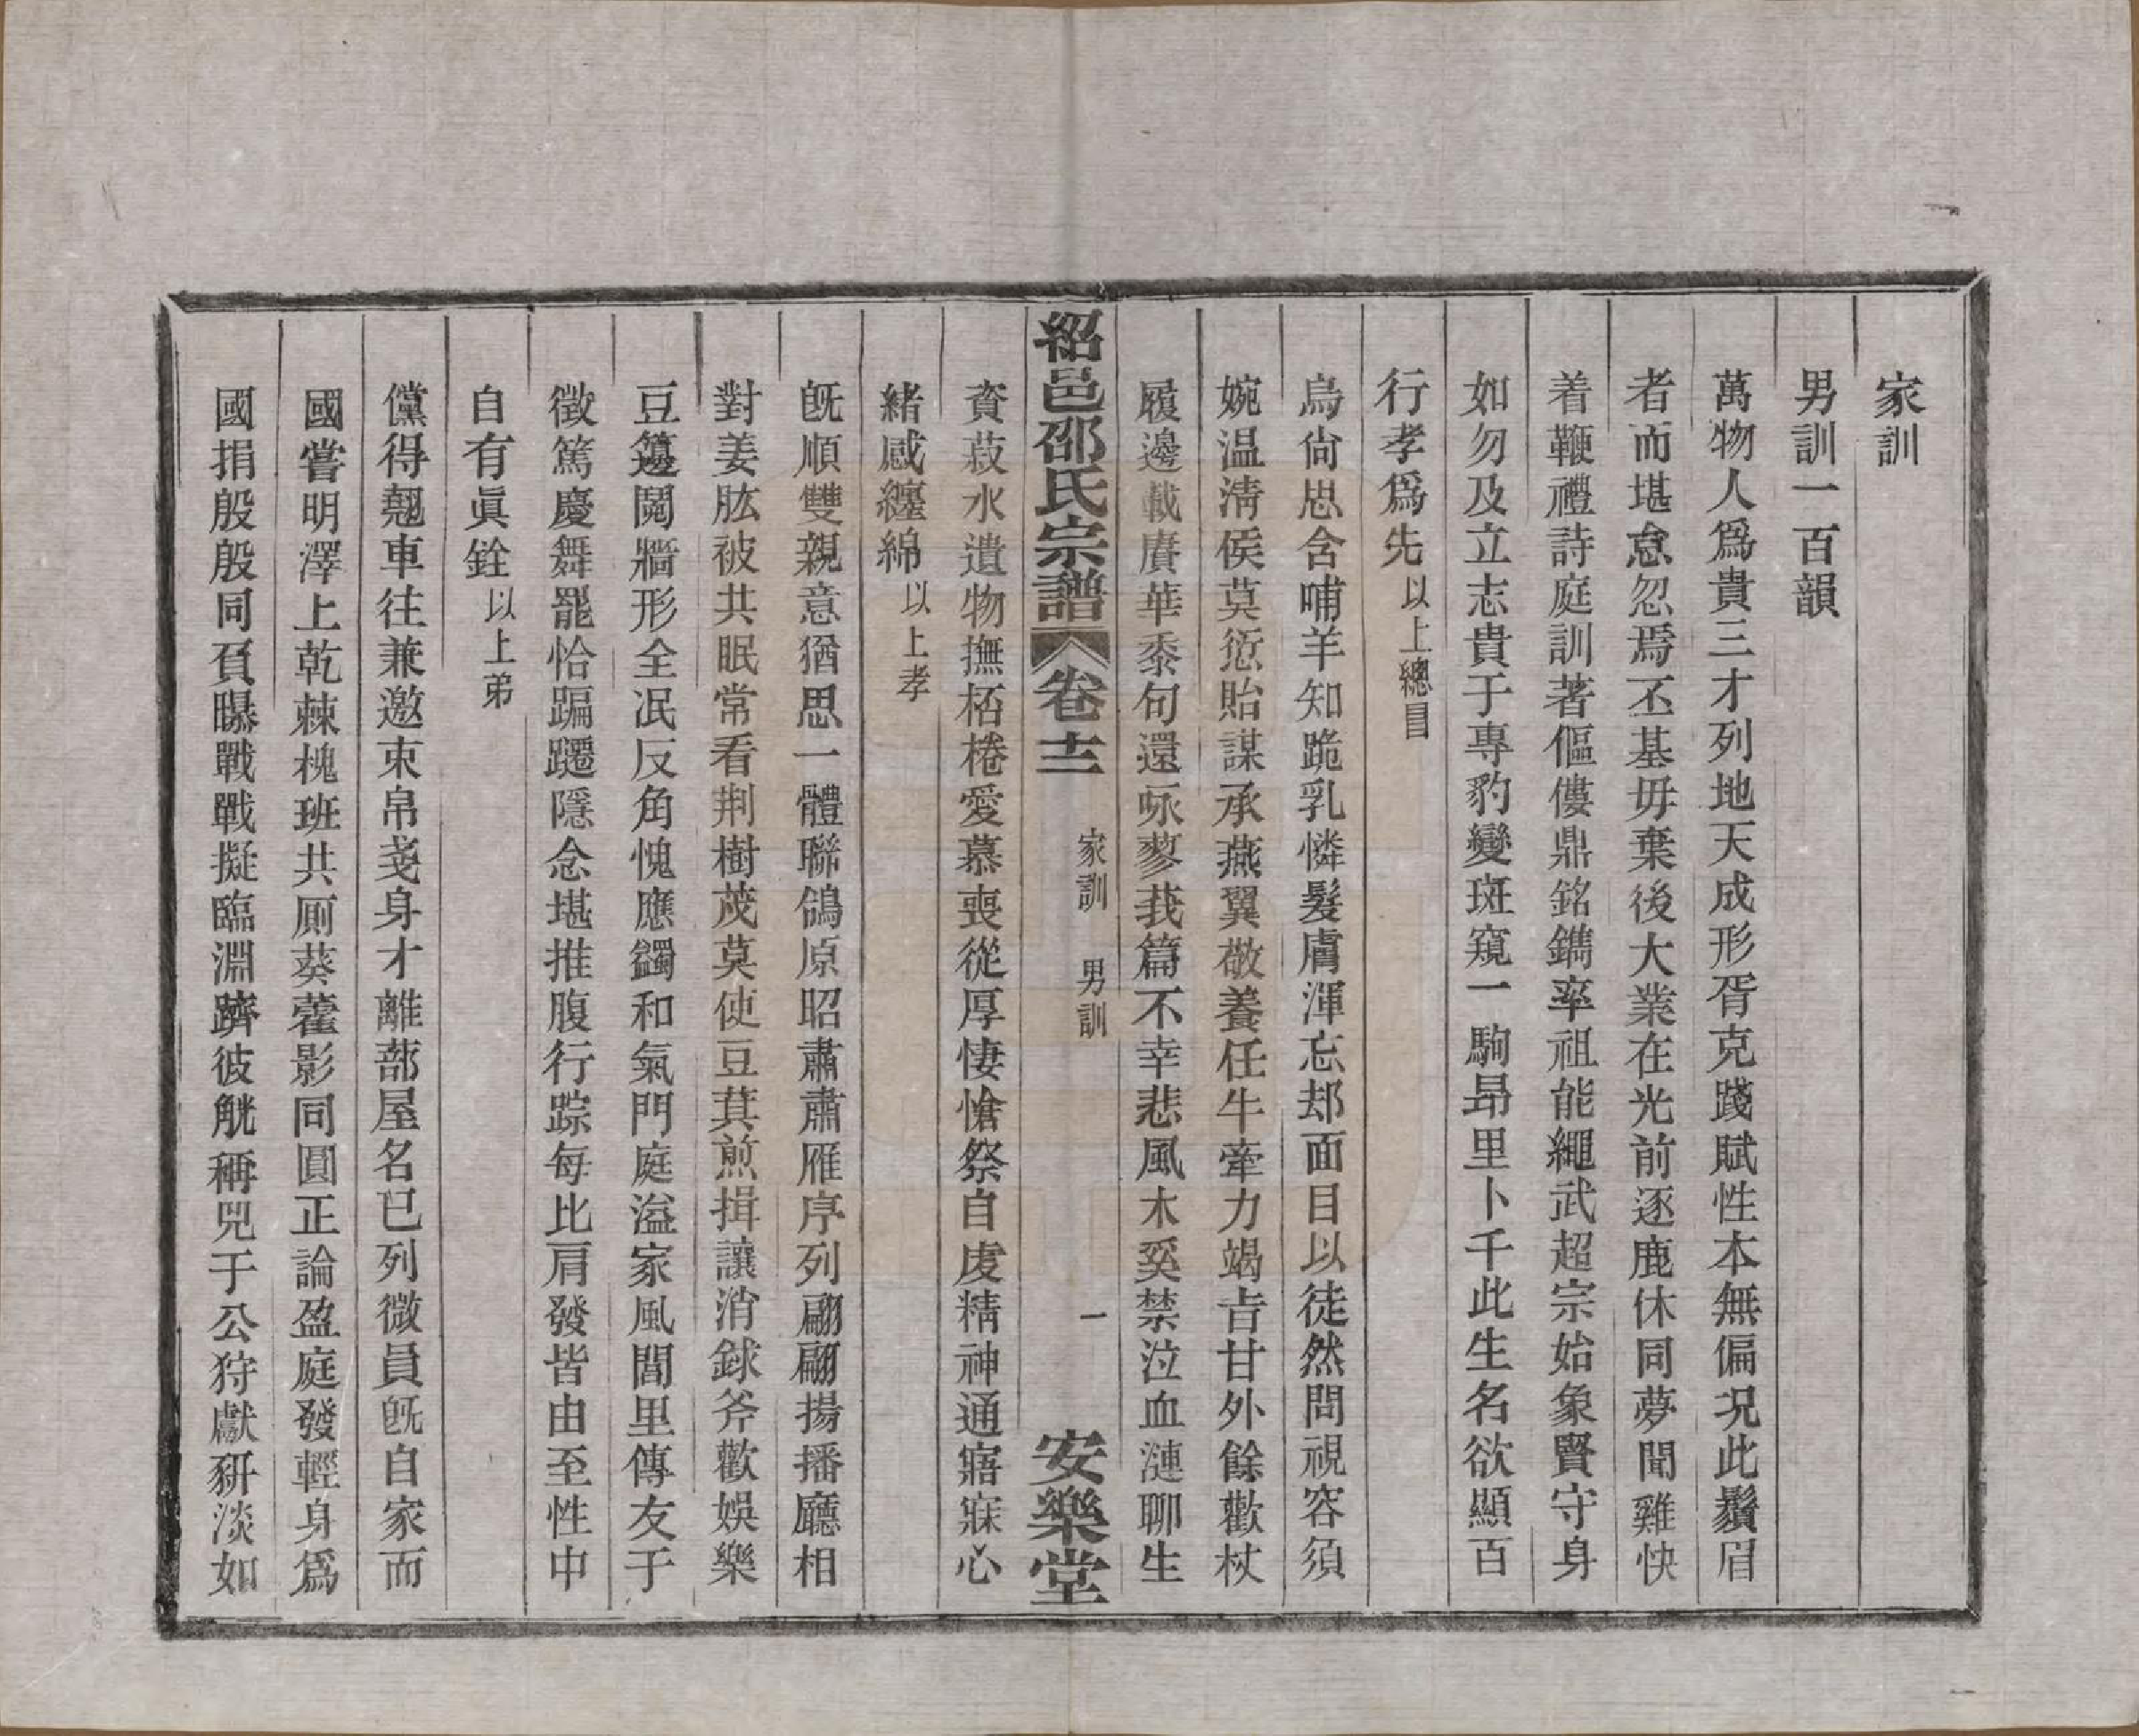 家訓
男訓一百韻
萬物人爲貴三才列地天成形胥克踐賦性本無偏况此鬚眉
者而堪怠忽焉丕基毋棄後大業在光前逐鹿休同夢聞雞快
着鞭禮詩庭訓著傴僂鼎銘鐫率祖能繩武超宗始象賢守身
如勿及立志貴于專豹變斑窺一駒昻里卜千此生名欲顯百
行孝爲先以上總目
烏尙思含哺羊知跪乳憐髮膚渾忘却面目以徒然問視容須
婉温凊侯莫愆貽謀承燕翼敬養任牛牽力竭旨甘外餘歡杖
履邊載賡華黍句還咏蓼莪篇不幸悲風木奚禁泣血漣聊生
紹邑邵氏宗譜 卷十二 家訓 男訓 一 安樂堂
資菽水遺物撫桮棬愛慕喪從厚悽愴祭自虔精神通寤寐心
緒感纏綿以上孝
旣順雙親意猶思一體聯鴒原昭肅肅雁序列翩翩揚播廳相
對姜肱被共眠常看荆樹茂莫使豆萁煎揖讓消銶斧歡娛樂
豆籩鬩牆形全泯反角愧應蠲和氣門庭溢家風閭里傳友于
徵篤慶舞罷恰蹁躚隱念堪推腹行踪每比肩發皆由至性中
自有眞銓以上弟
儻得翹車往兼邀束帛戔身才離蔀屋名已列微員旣自家而
國嘗明澤上乾棘槐班共厠葵藿影同圓正論盈庭發輕身爲
國捐殷殷同負曝戰戰擬臨淵躋彼觥稱兕于公狩獻豣淡如